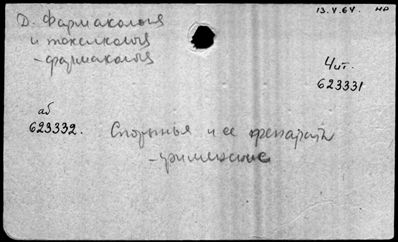 13.V.64. нр
Д. Фармакология
и токсикология
- фармакология
Чит.
623331
аб
623332. Спорынья и ее препараты
- применение